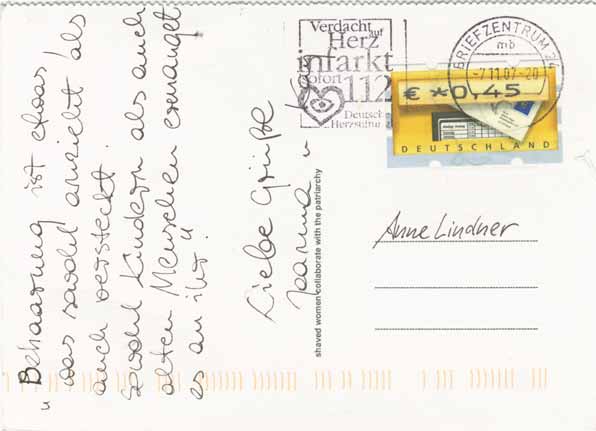 „Behaarung ist etwas
was sowohl anzieht als
auch versteckt.
Sowohl Kindern als auch
alten Menschen ermangelt
es an ihr."
Liebe Grüße
shaved women collaborate with the patriarchy
Verdacht auf
Herz
infarkt
sofort
112
Deutsche
Herzstiftung
BRIEFZENTRUM 24
mb
-7.11.07-20
€ *0,45
DEUTSCHLAND
Anne Lindner